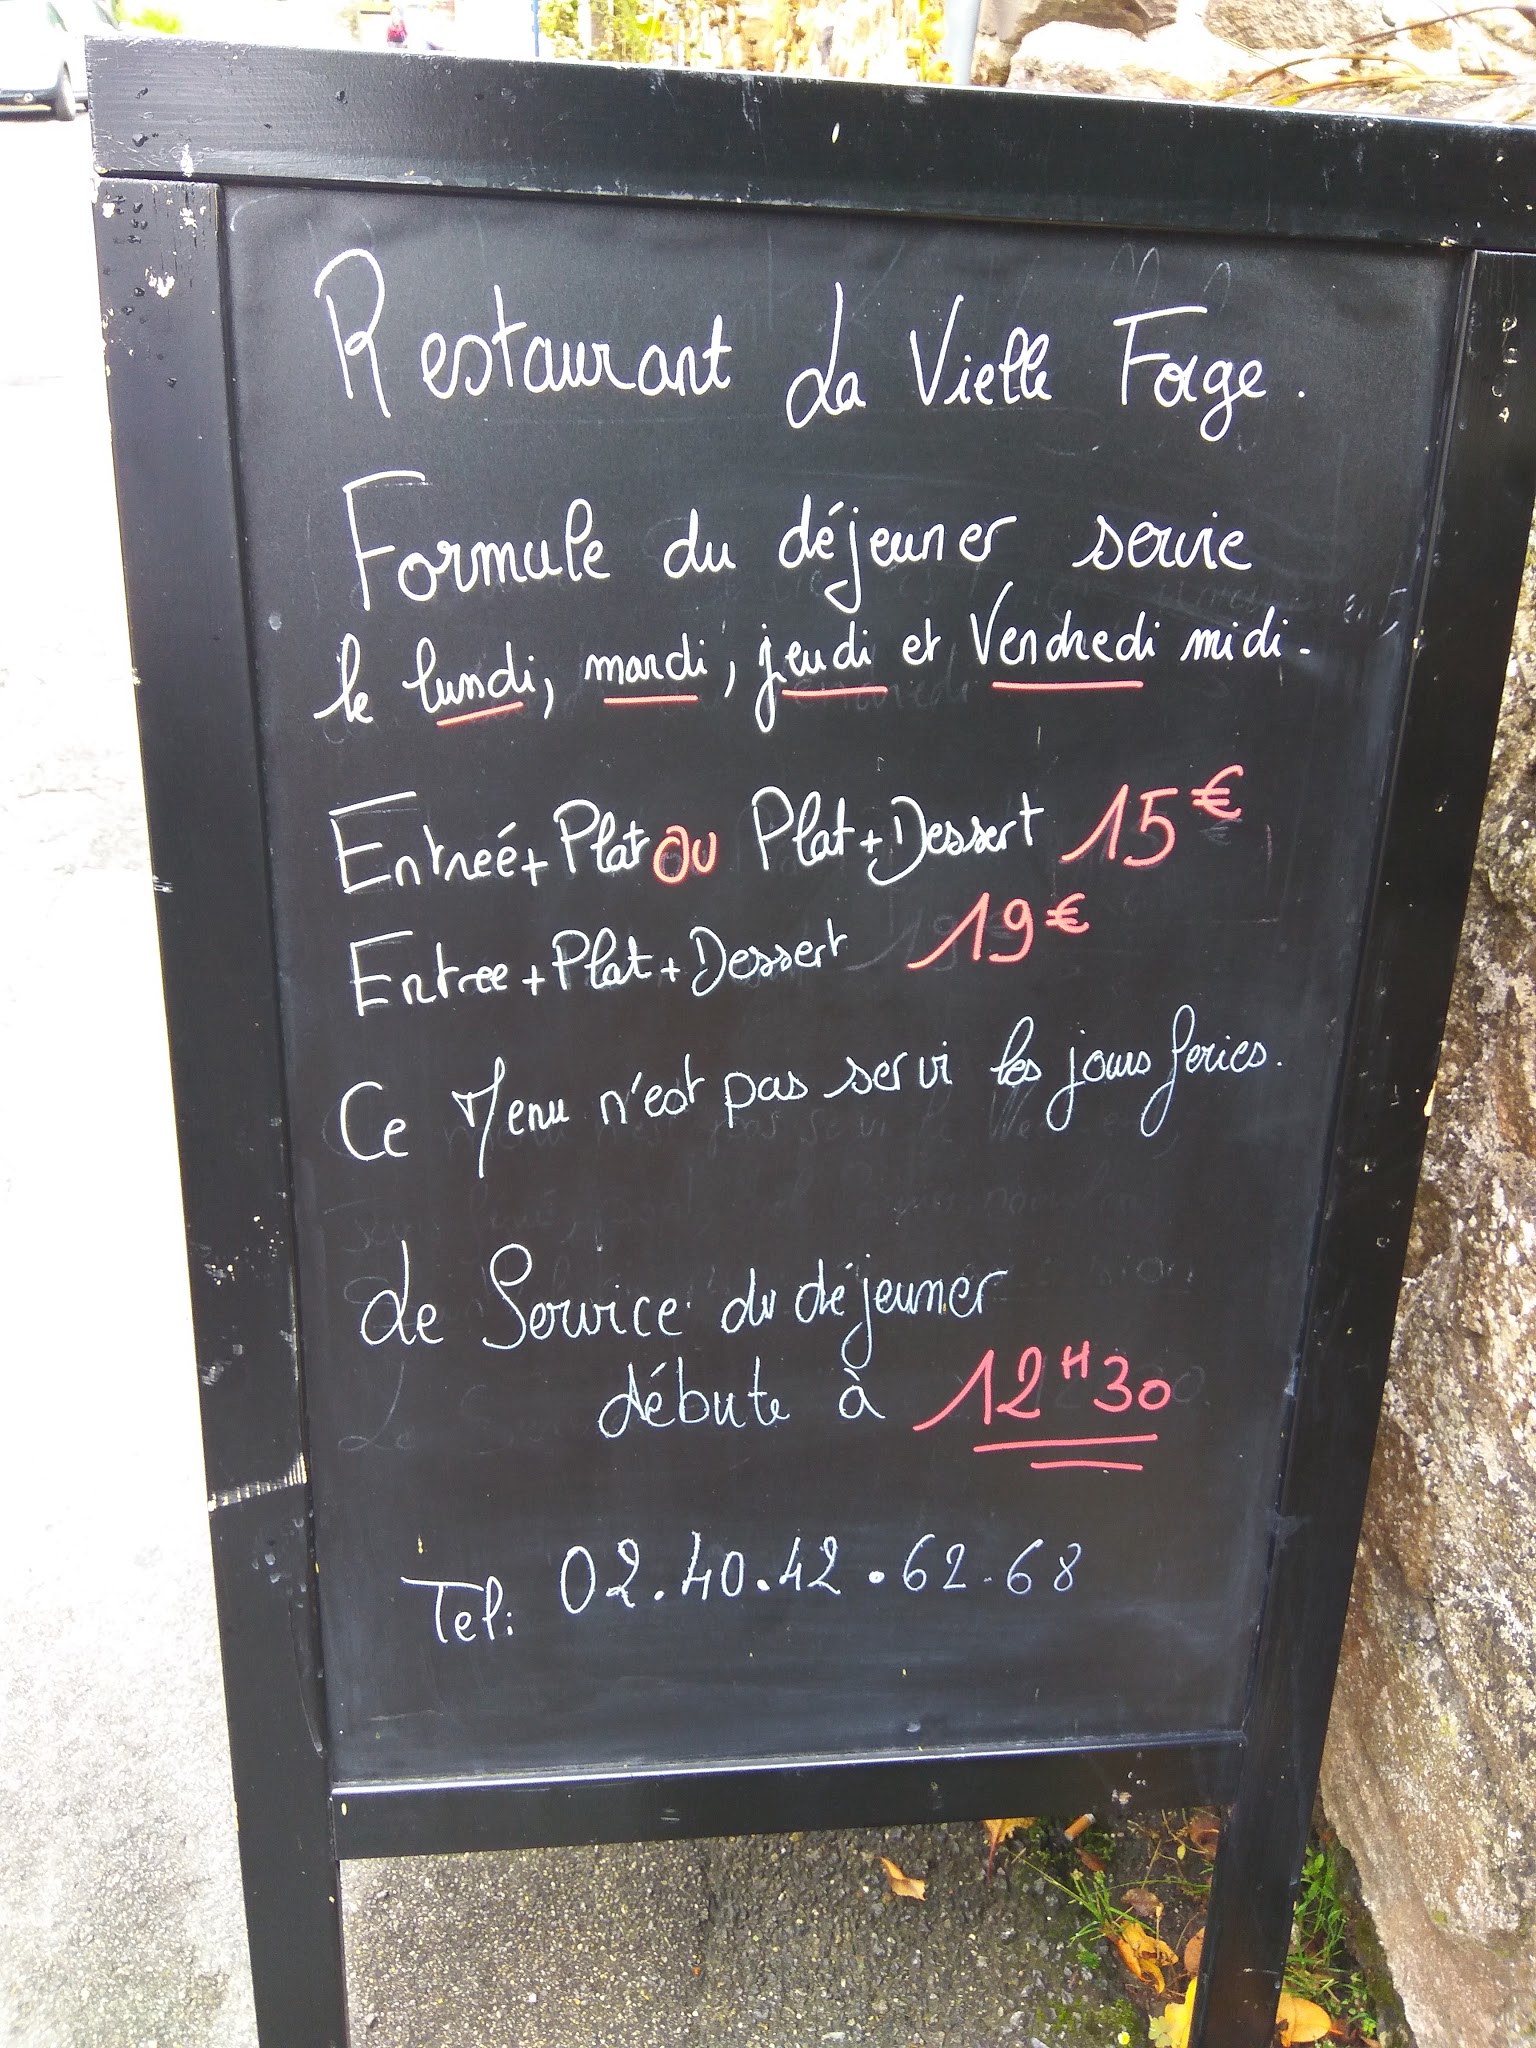 Restaurant La Vielle Forge.
Formule du déjeuner servie
le lundi, mardi, jeudi et Vendredi midi.
Entreé + Plat ou Plat + Dessert 15€
Entree + Plat + Dessert 19€
Ce Menu n'est pas servi les jours feries.
Le Service du déjeuner
débute à 12H30
Tel: 02.40.42.62.68